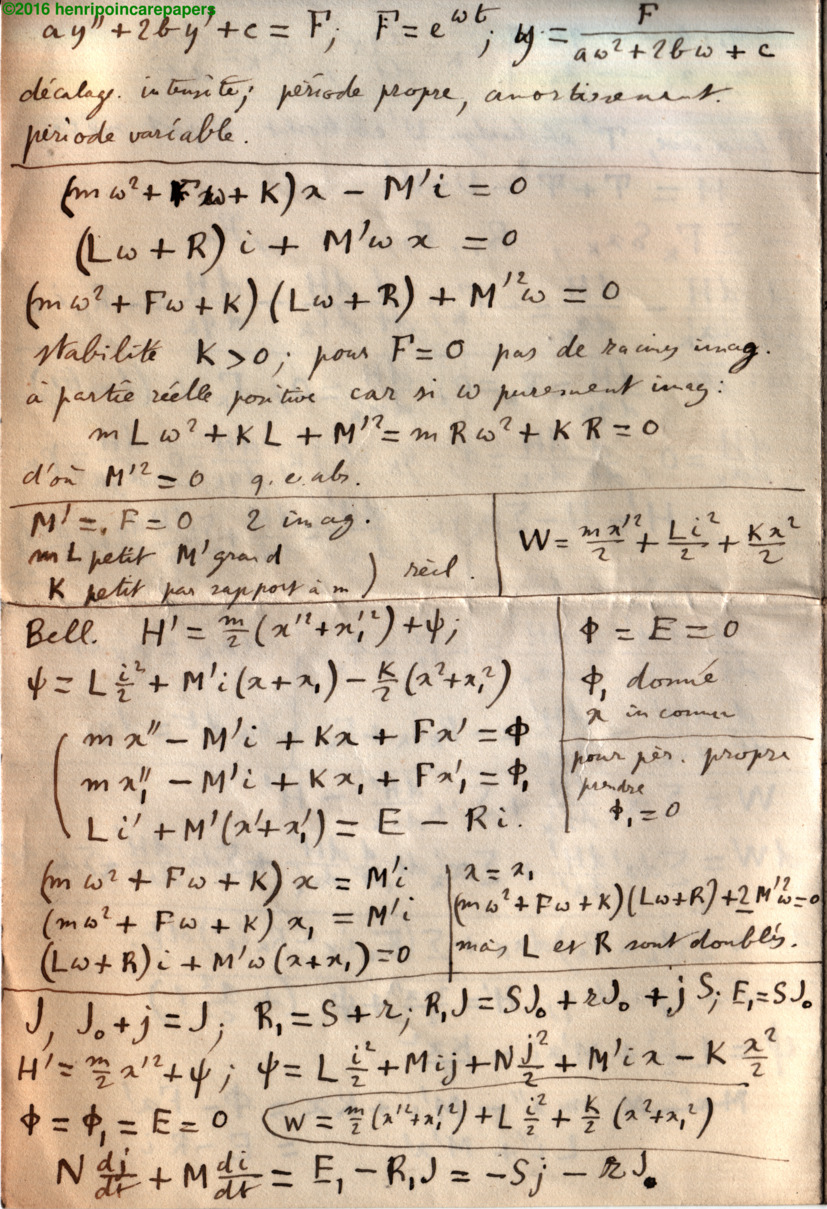 ©2016 henripoincarepapers
ay'' + 2by' + c = F; F = e^{ωt}; y = F / (aω² + 2bω + c)
décalage. intensité; période propre, amortissement.
période variable.
(mω² + Fω + K)x − M'i = 0
(Lω + R) i + M'ω x = 0
(mω² + Fω + K)(Lω + R) + M'²ω = 0
stabilité K > 0; pour F = 0 pas de racines imag.
à partie réelle positive car si ω purement imag:
m L ω² + K L + M'² = m R ω² + K R = 0
d'où M'² = 0 q. e. abs.
M' =, F = 0 2 imag.
m L petit M' grand
K petit par rapport à m ) réel.
W = mx'²/2 + Li²/2 + Kx²/2
Bell. H' = m/2 (x'² + x₁'²) + ψ;
ψ = L i²/2 + M'i(x + x₁) − K/2 (x² + x₁²)
m x'' − M'i + Kx + Fx' = Φ
m x₁'' − M'i + Kx₁ + Fx₁' = Φ₁
L i' + M'(x' + x₁') = E − Ri.
Φ = E = 0
Φ₁ donné
x inconnu
pour pér. propre
prendre
Φ₁ = 0
(mω² + Fω + K) x = M'i
(mω² + Fω + K) x₁ = M'i
(Lω + R)i + M'ω(x + x₁) = 0
x = x₁
(mω² + Fω + K)(Lω + R) + 2M'²ω = 0
mais L et R sont doublés.
J, J₀ + j = J; R₁ = S + r; R₁J = SJ₀ + rJ₀ + jS; E₁ = SJ₀
H' = m/2 x'² + ψ; ψ = L i²/2 + Mij + N j²/2 + M'ix − K x²/2
Φ = Φ₁ = E = 0 W = m/2 (x'² + x₁'²) + L i²/2 + K/2 (x² + x₁²)
N dj/dt + M di/dt = E₁ − R₁J = −Sj − rJ₀